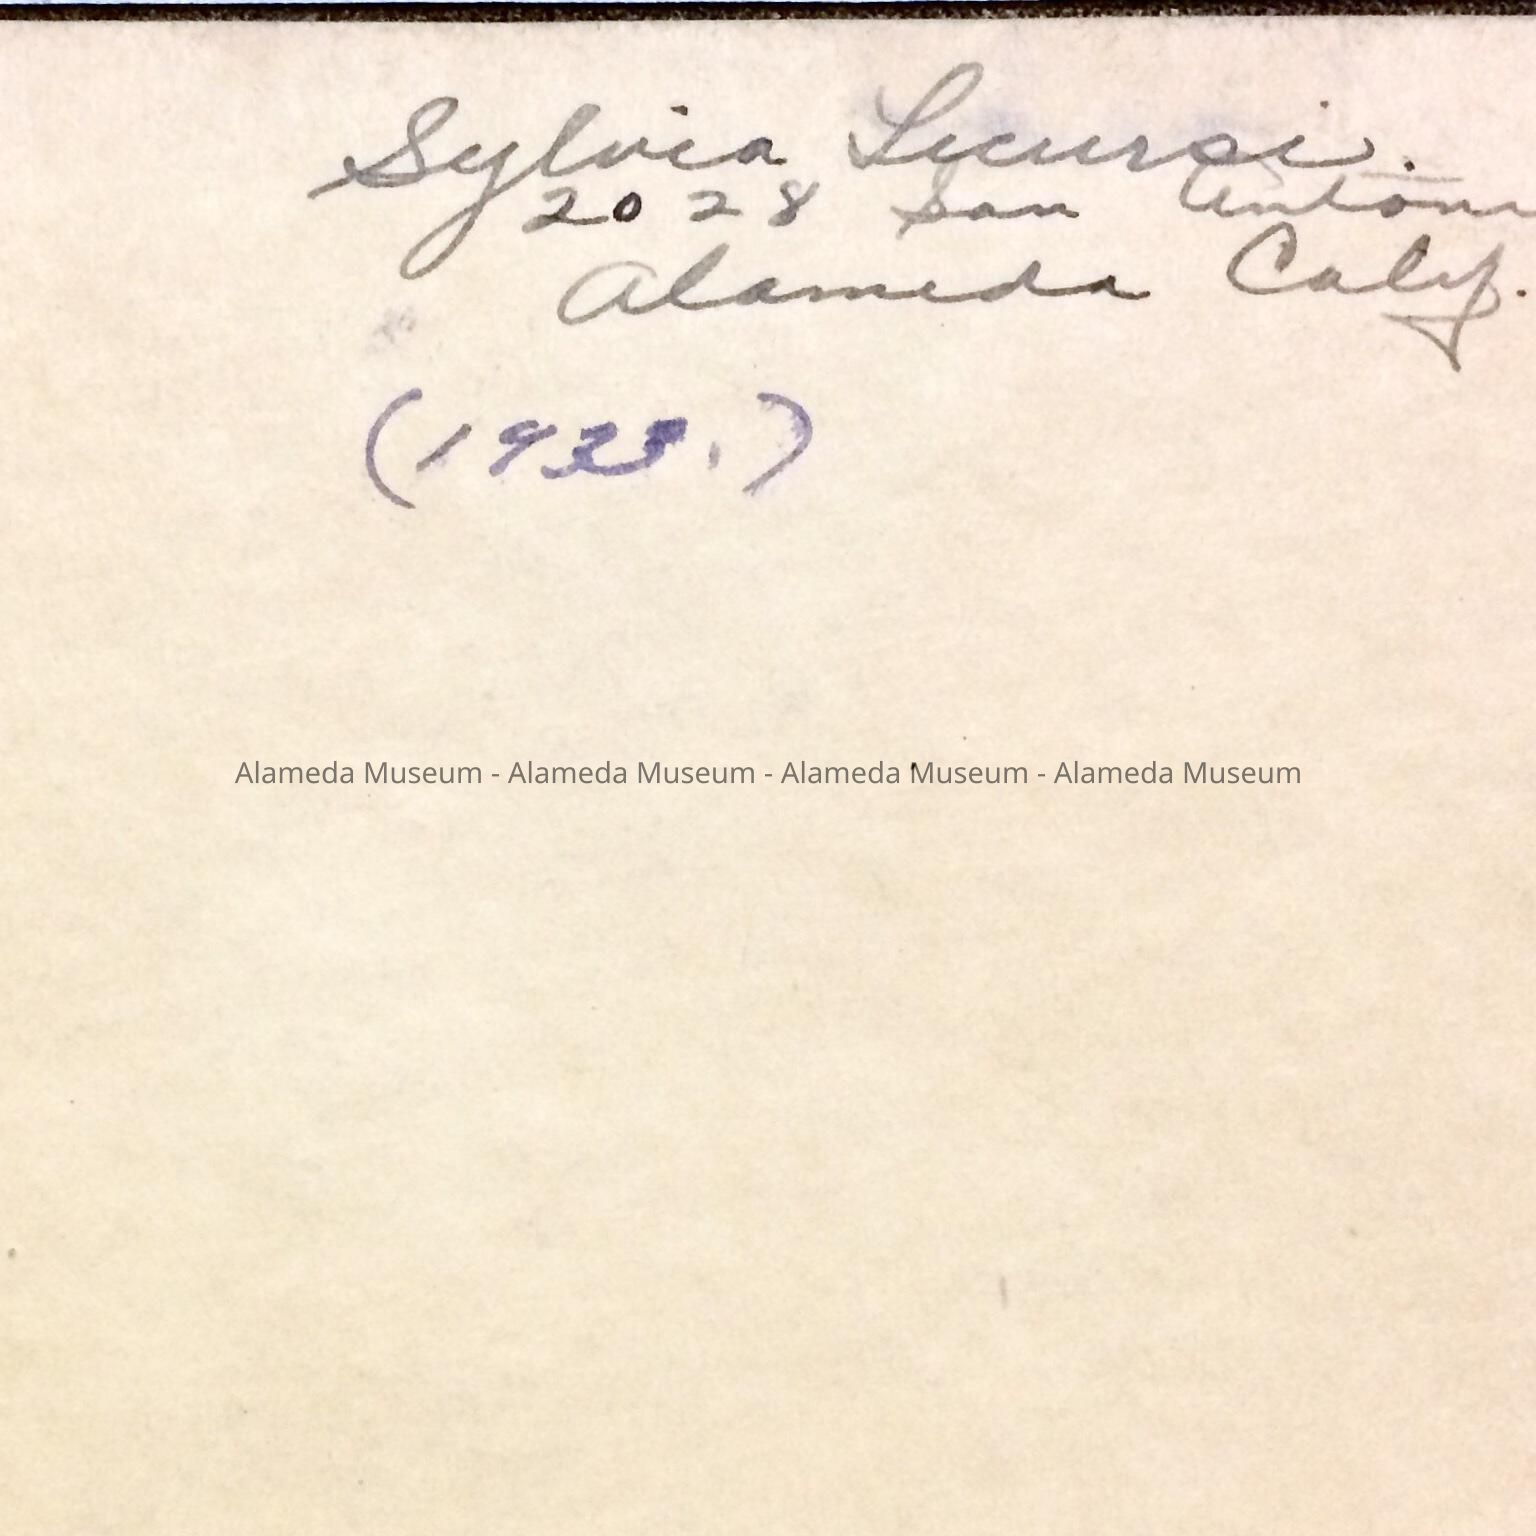 Sylvia Licursi.
2028 San Antoni
Alameda Calif.
(1933.)
Alameda Museum - Alameda Museum - Alameda Museum - Alameda Museum